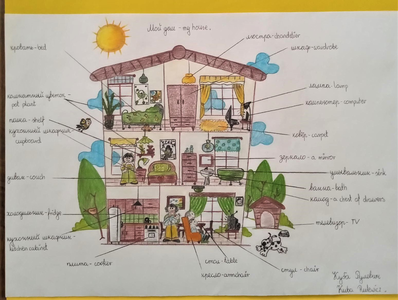 Мой дом - my house.
кровать-bed
люстра-chandelier
шкаф-wardrobe
комнатный цветок-
pot plant
лампа-lamp
компьютер-computer
полка-shelf
кухонный шкафчик-
cupboard
ковёр-carpet
зеркало-a mirror
умывальник-sink
диван-couch
ванна-bath
комод-a chest of drawers
холодильник-fridge
телевизор-TV
кухонный шкафчик-
плита-cooker
стол-table
кресло-armchair
стул-chair